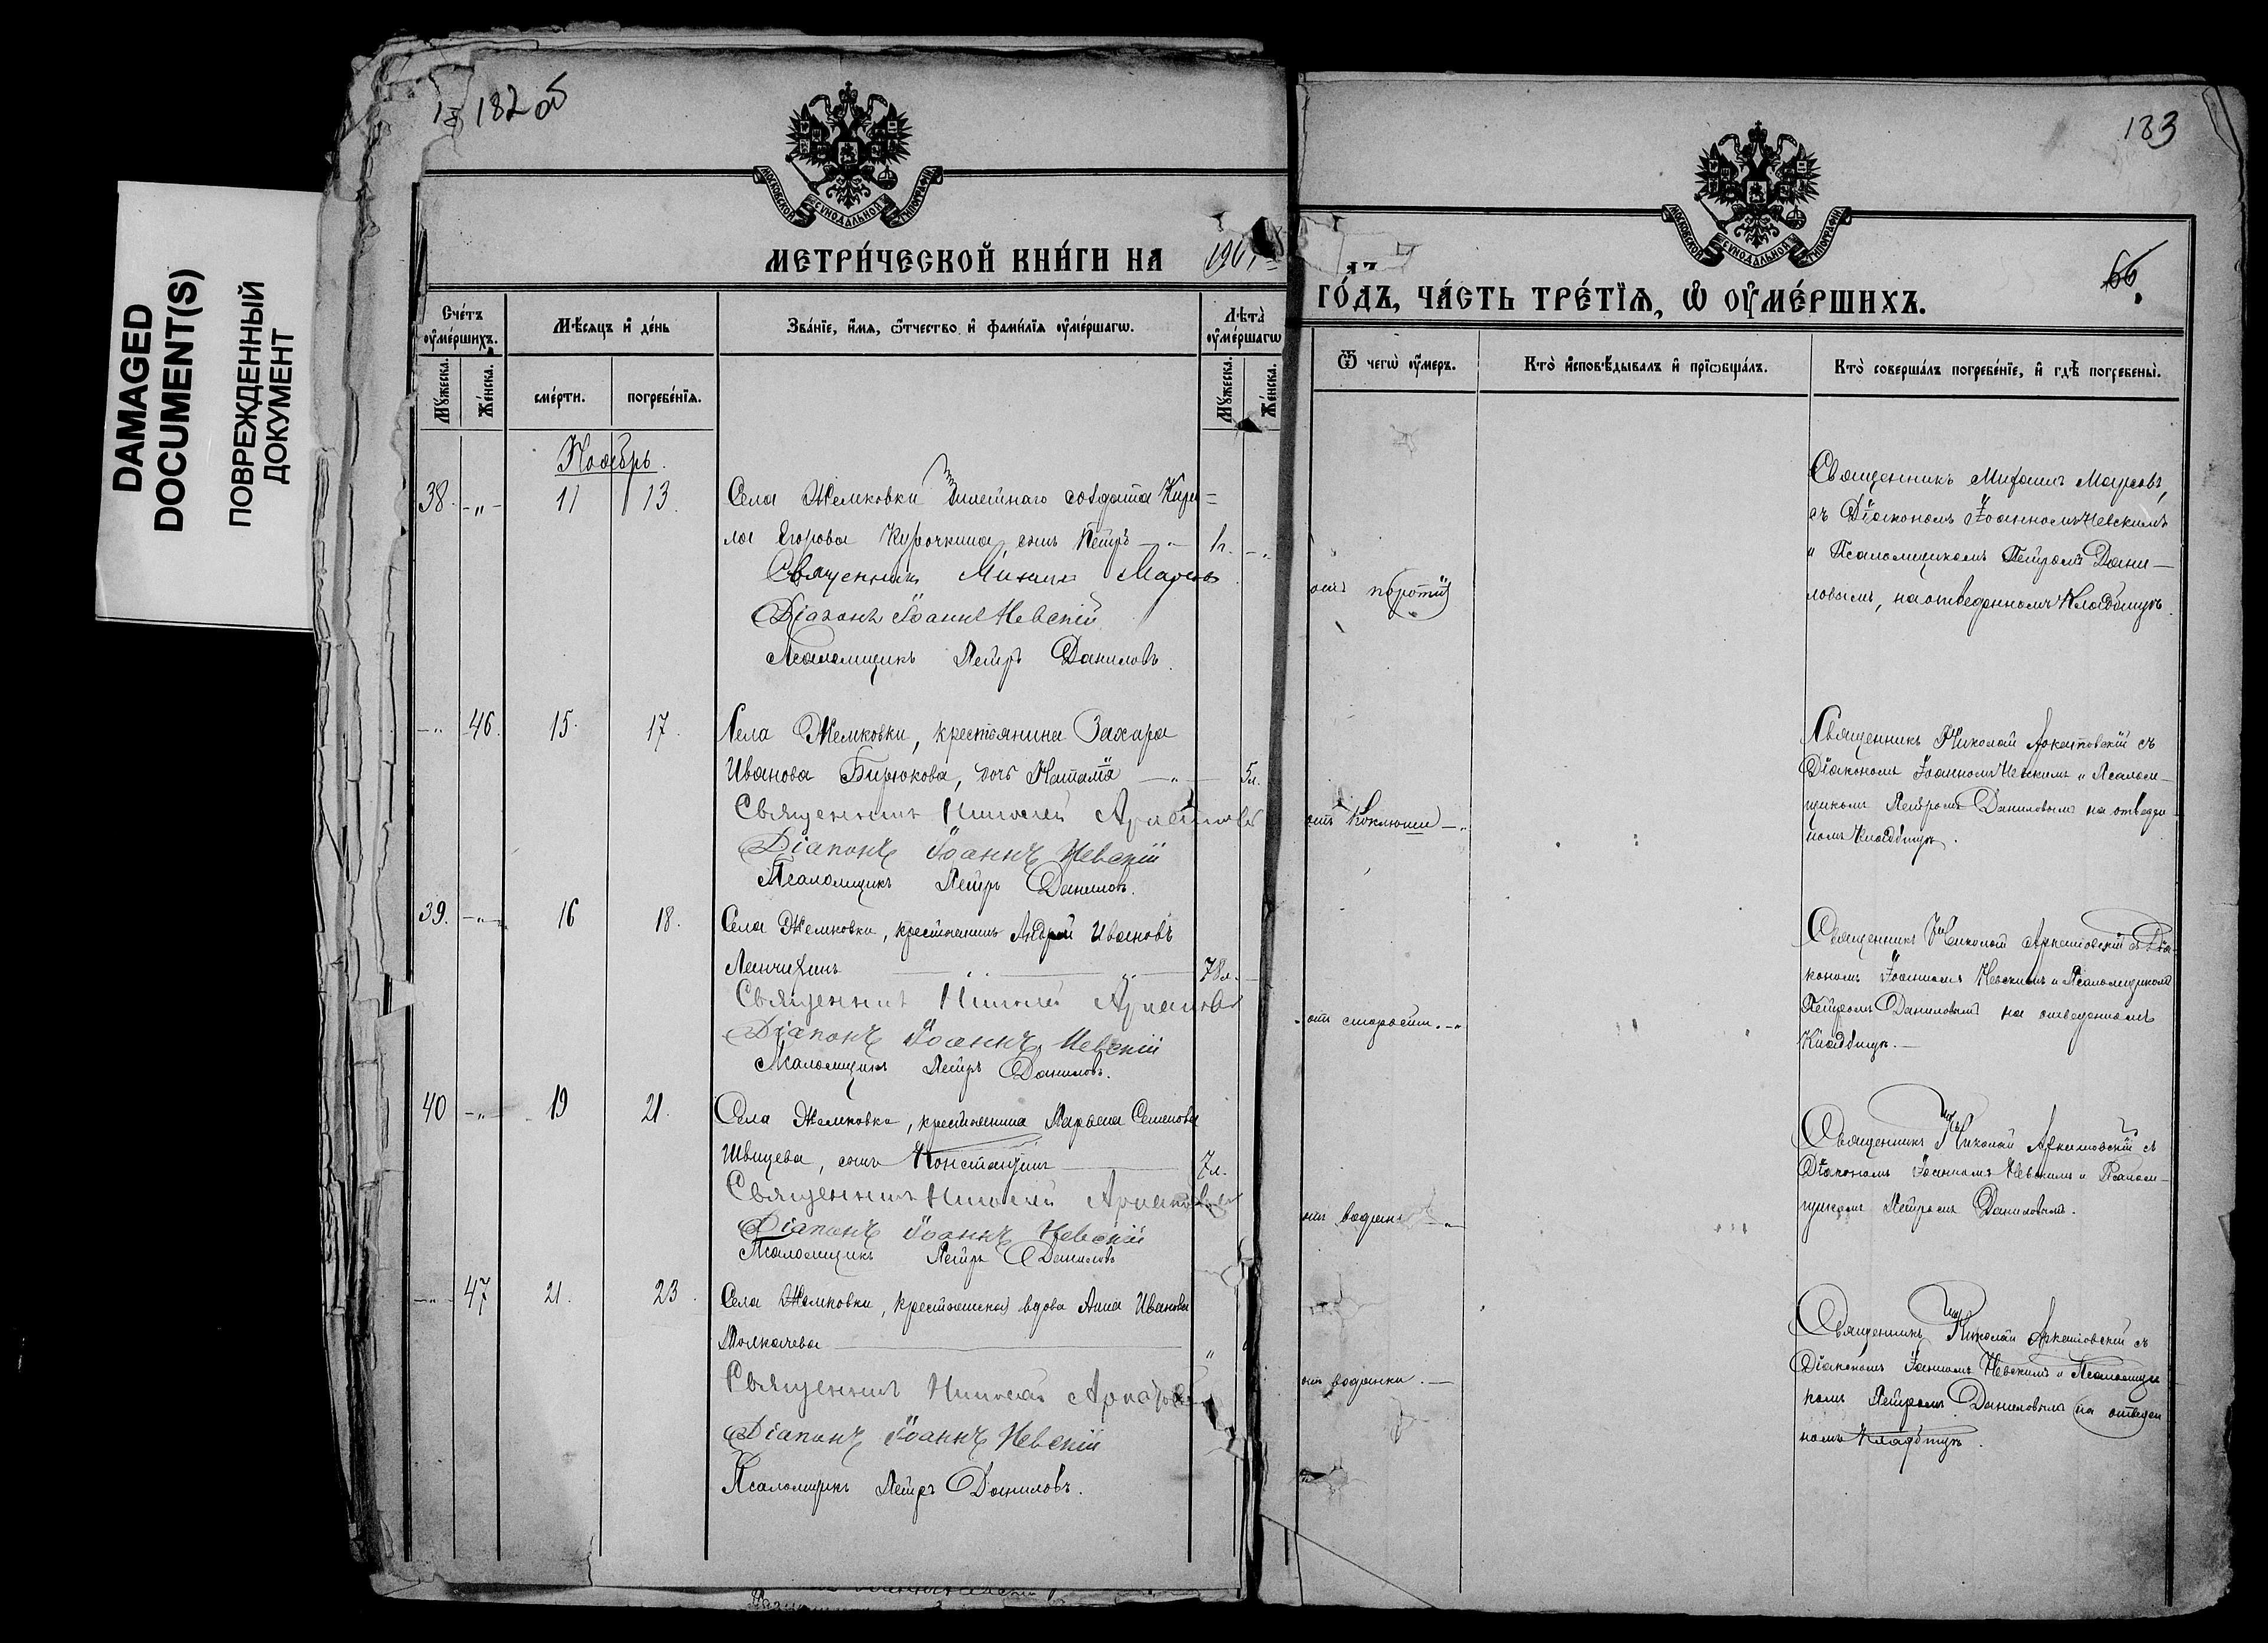 182 об
183
DAMAGED
DOCUMENT(S)
ПОВРЕЖДЕННЫЙ
ДОКУМЕНТ
МОСКОВСКОЙ СѴНОДАЛЬНОЙ ТИПОГРАФІИ
МОСКОВСКОЙ СѴНОДАЛЬНОЙ ТИПОГРАФІИ
МЕТРИ́ЧЕСКОЙ КНИ́ГИ НА
ГО́ДЪ, ЧА́СТЬ ТРЕ́ТЇѦ, Ѡ҆ ОУ҆МЕ́РШИХЪ.
66
Сче́тъ оу҆ме́ршихъ.
Мѣ́сѧцъ и҆ де́нь
Зва́нїе, и҆́мѧ, ѻ҆́тчество и҆ фами́лїѧ оу҆ме́ршагѡ.
Лѣ́та оу҆ме́ршагѡ
Мꙋ́жеска.
Же́нска.
сме́рти.
погребе́нїѧ.
Мꙋ́жеска.
Же́нска.
Ѿ чегѡ̀ оу҆́меръ.
Кто̀ и҆сповѣ́дывалъ и҆ прїѡбща́лъ.
Кто̀ соверша́лъ погребе́нїе, и҆ гдѣ̀ погребены̀.
Ноябрь.
38. -"- 11 13. Села Жемковки билетнаго солдата Кири=
ла Егорова Курочкина, сынъ Петръ -"-
Священникъ Михаилъ
Діаконъ Іоаннъ Невскій
Псаломщикъ Петръ Даниловъ.
Священникъ Михаилъ
съ Діакономъ Іоанномъ Невскимъ
и Псаломщикомъ Петромъ Дани-
ловымъ, на отведенномъ кладбищѣ.
-"- 46. 15. 17. Села Жемковки, крестьянина Захара
Иванова Бирюкова, дочь Наталія -"- 5л.
Священникъ Николай
Діаконъ Іоаннъ Невскій
Псаломщикъ Петръ Даниловъ.
отъ коклюши -"-
Священникъ Николай Аркатовскій съ
Діакономъ Іоанномъ Невскимъ и Псалом-
щикомъ Петромъ Даниловымъ на отведен-
номъ кладбищѣ.
39. -"- 16 18. Села Жемковки, крестьянинъ Андрей Ивановъ
78л.
Священникъ Николай
Діаконъ Іоаннъ Невскій
Псаломщикъ Петръ Даниловъ.
отъ старости. -"-
Священникъ Николай Аркатовскій съ Діа-
кономъ Іоанномъ Невскимъ и Псаломщикомъ
Петромъ Даниловымъ на отведенномъ
кладбищѣ. -
40 -"- 19 21. Села Жемковки, крестьянина Семенова
Швецева, сынъ Константинъ 7л.
Священникъ Николай
Діаконъ Іоаннъ Невскій
Псаломщикъ Петръ Даниловъ
отъ
Священникъ Николай Аркатовскій съ
Діакономъ Іоанномъ Невскимъ и Псалом-
щикомъ Петромъ Даниловымъ.
-"- 47 21. 23. Села Жемковки, крестьянская вдова Анна Иванова
Толкачева
Священникъ Николай
Діаконъ Іоаннъ Невскій
Псаломщикъ Петръ Даниловъ.
отъ водянки. -
Священникъ Николай Аркатовскій съ
Діакономъ Іоанномъ Невскимъ и Псаломщи
комъ Петромъ Даниловымъ на отведен
номъ кладбищѣ.